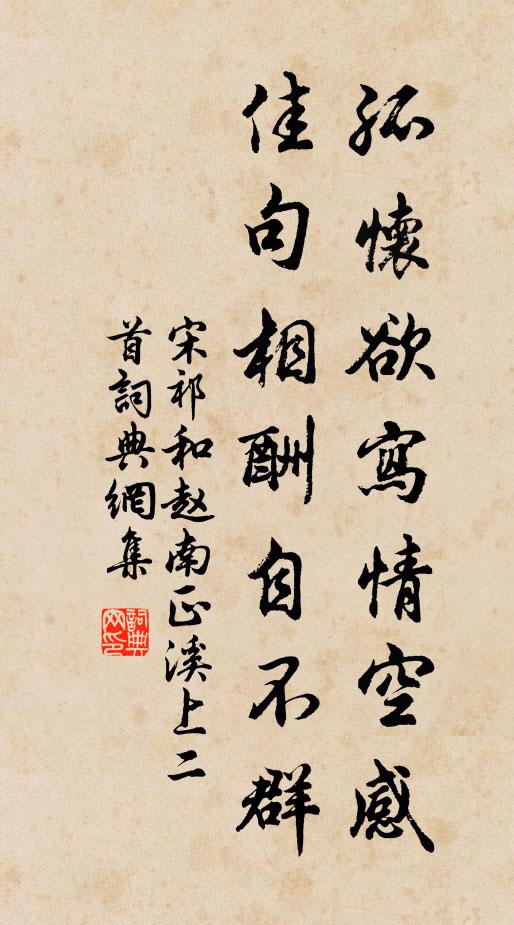 孤懷欲寫情空感
佳句相酬自不群
宋祁和赵南正溪上二
首詞典網集
詞典网印